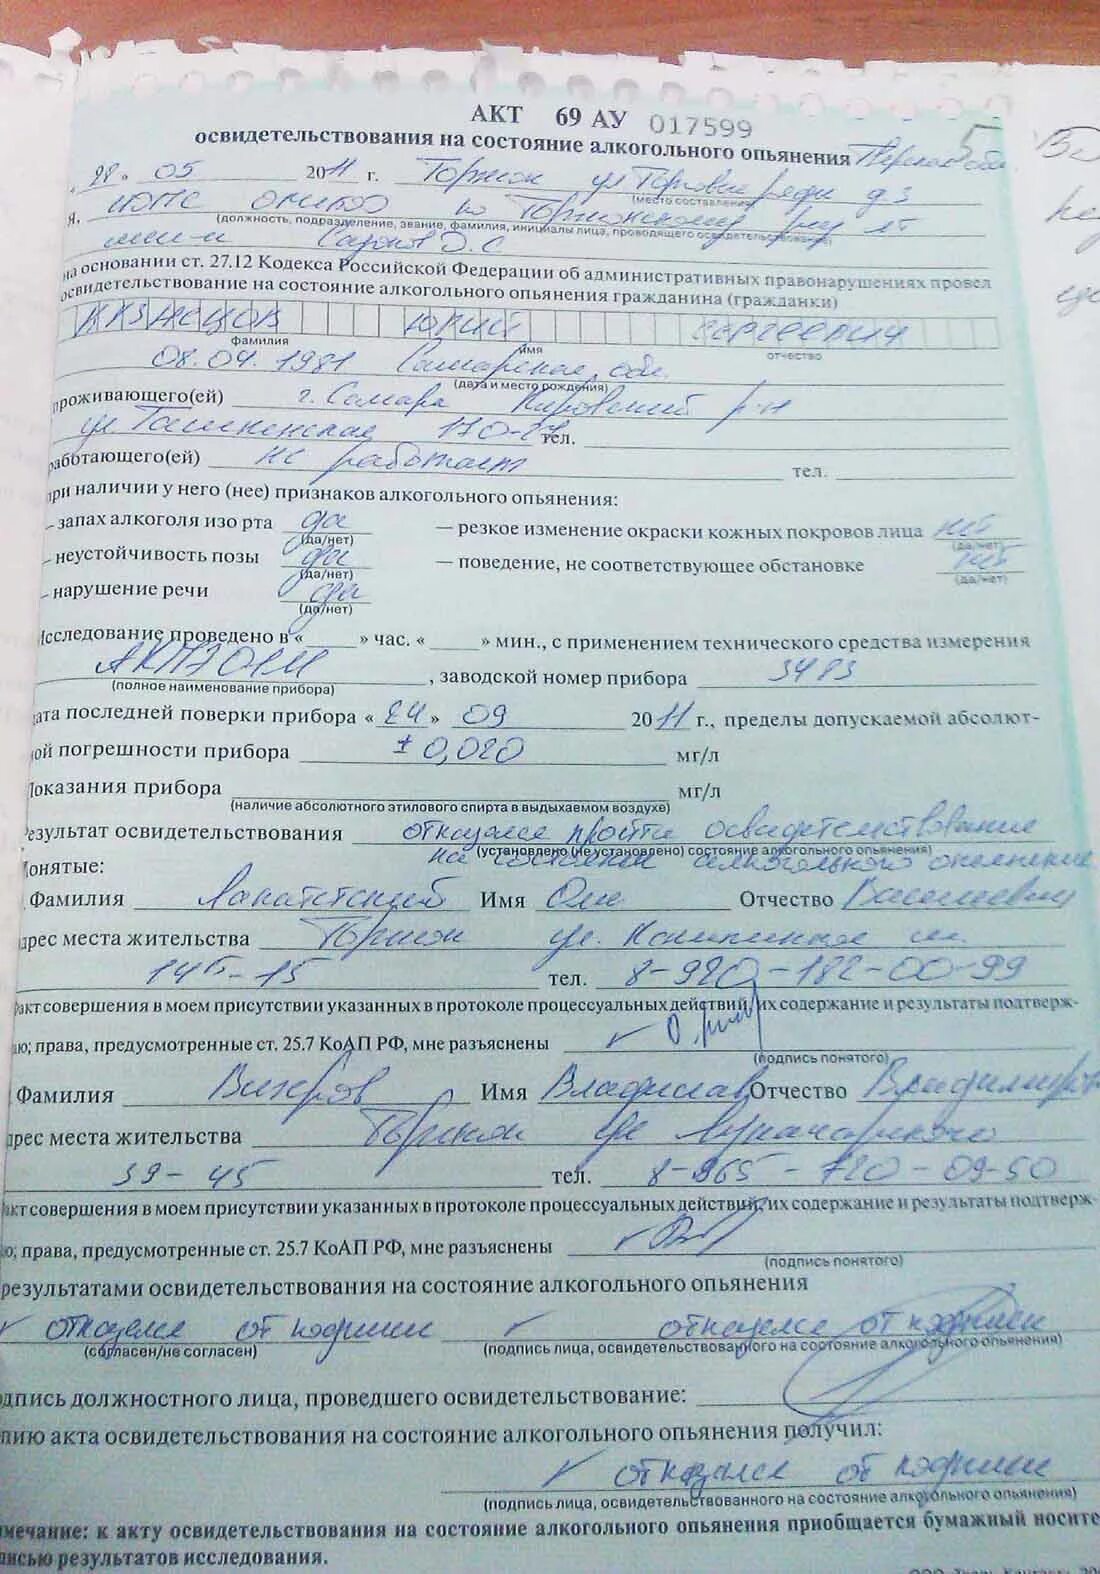 АКТ 69 АУ 017599 5
освидетельствования на состояние алкогольного опьянения Тверская обл.
05 2011 г. Торжок ул Торговые ряды д.3
(место составления)
Я, ИДПС ОГИБДД по Торжокскому р-ну лт
(должность, подразделение, звание, фамилия, инициалы лица, проводящего освидетельствование)
мил-и Д.С
на основании ст. 27.12 Кодекса Российской Федерации об административных правонарушениях провел
освидетельствование на состояние алкогольного опьянения гражданина (гражданки)
ЮРИЙ СЕРГЕЕВИЧ
фамилия имя отчество
08.04.1981 Самарская обл.
(дата и место рождения)
проживающего(ей) г. Самара Кировский р-н
ул. Ташкенская 170-27 тел.
работающего(ей) не работает тел.
при наличии у него (нее) признаков алкогольного опьянения:
– запах алкоголя изо рта да — резкое изменение окраски кожных покровов лица нет
(да/нет) (да/нет)
– неустойчивость позы да — поведение, не соответствующее обстановке нет
(да/нет) (да/нет)
– нарушение речи да
(да/нет)
Исследование проведено в «____» час. «____» мин., с применением технического средства измерения
, заводской номер прибора 3483
(полное наименование прибора)
дата последней поверки прибора « 24 » 09 2011 г., пределы допускаемой абсолют-
ной погрешности прибора ± 0,020 мг/л
Показания прибора мг/л
(наличие абсолютного этилового спирта в выдыхаемом воздухе)
Результат освидетельствования отказался пройти освидетельствование
(установлено (не установлено) состояние алкогольного опьянения)
на состояние алкогольного опьянение
Понятые:
Фамилия Имя Отчество Васильевич
адрес места жительства Торжок ул.
14б-15 тел. 8-920-182-00-99
Факт совершения в моем присутствии указанных в протоколе процессуальных действий, их содержание и результаты подтверж-
даю; права, предусмотренные ст. 25.7 КоАП РФ, мне разъяснены
(подпись понятого)
Фамилия Вихров Имя Владислав Отчество Владимиров
адрес места жительства Торжок ул Луначарского
39-45 тел. 8-965-720-09-50
Факт совершения в моем присутствии указанных в протоколе процессуальных действий, их содержание и результаты подтверж-
даю; права, предусмотренные ст. 25.7 КоАП РФ, мне разъяснены
(подпись понятого)
результатами освидетельствования на состояние алкогольного опьянения
отказался от подписи отказался от подписи
(согласен/не согласен) (подпись лица, освидетельствованного на состояние алкогольного опьянения)
одпись должностного лица, проведшего освидетельствование:
пию акта освидетельствования на состояние алкогольного опьянения получил:
отказался от подписи
(подпись лица, освидетельствованного на состояние алкогольного опьянения)
мечание: к акту освидетельствования на состояние алкогольного опьянения приобщается бумажный носите
писью результатов исследования.